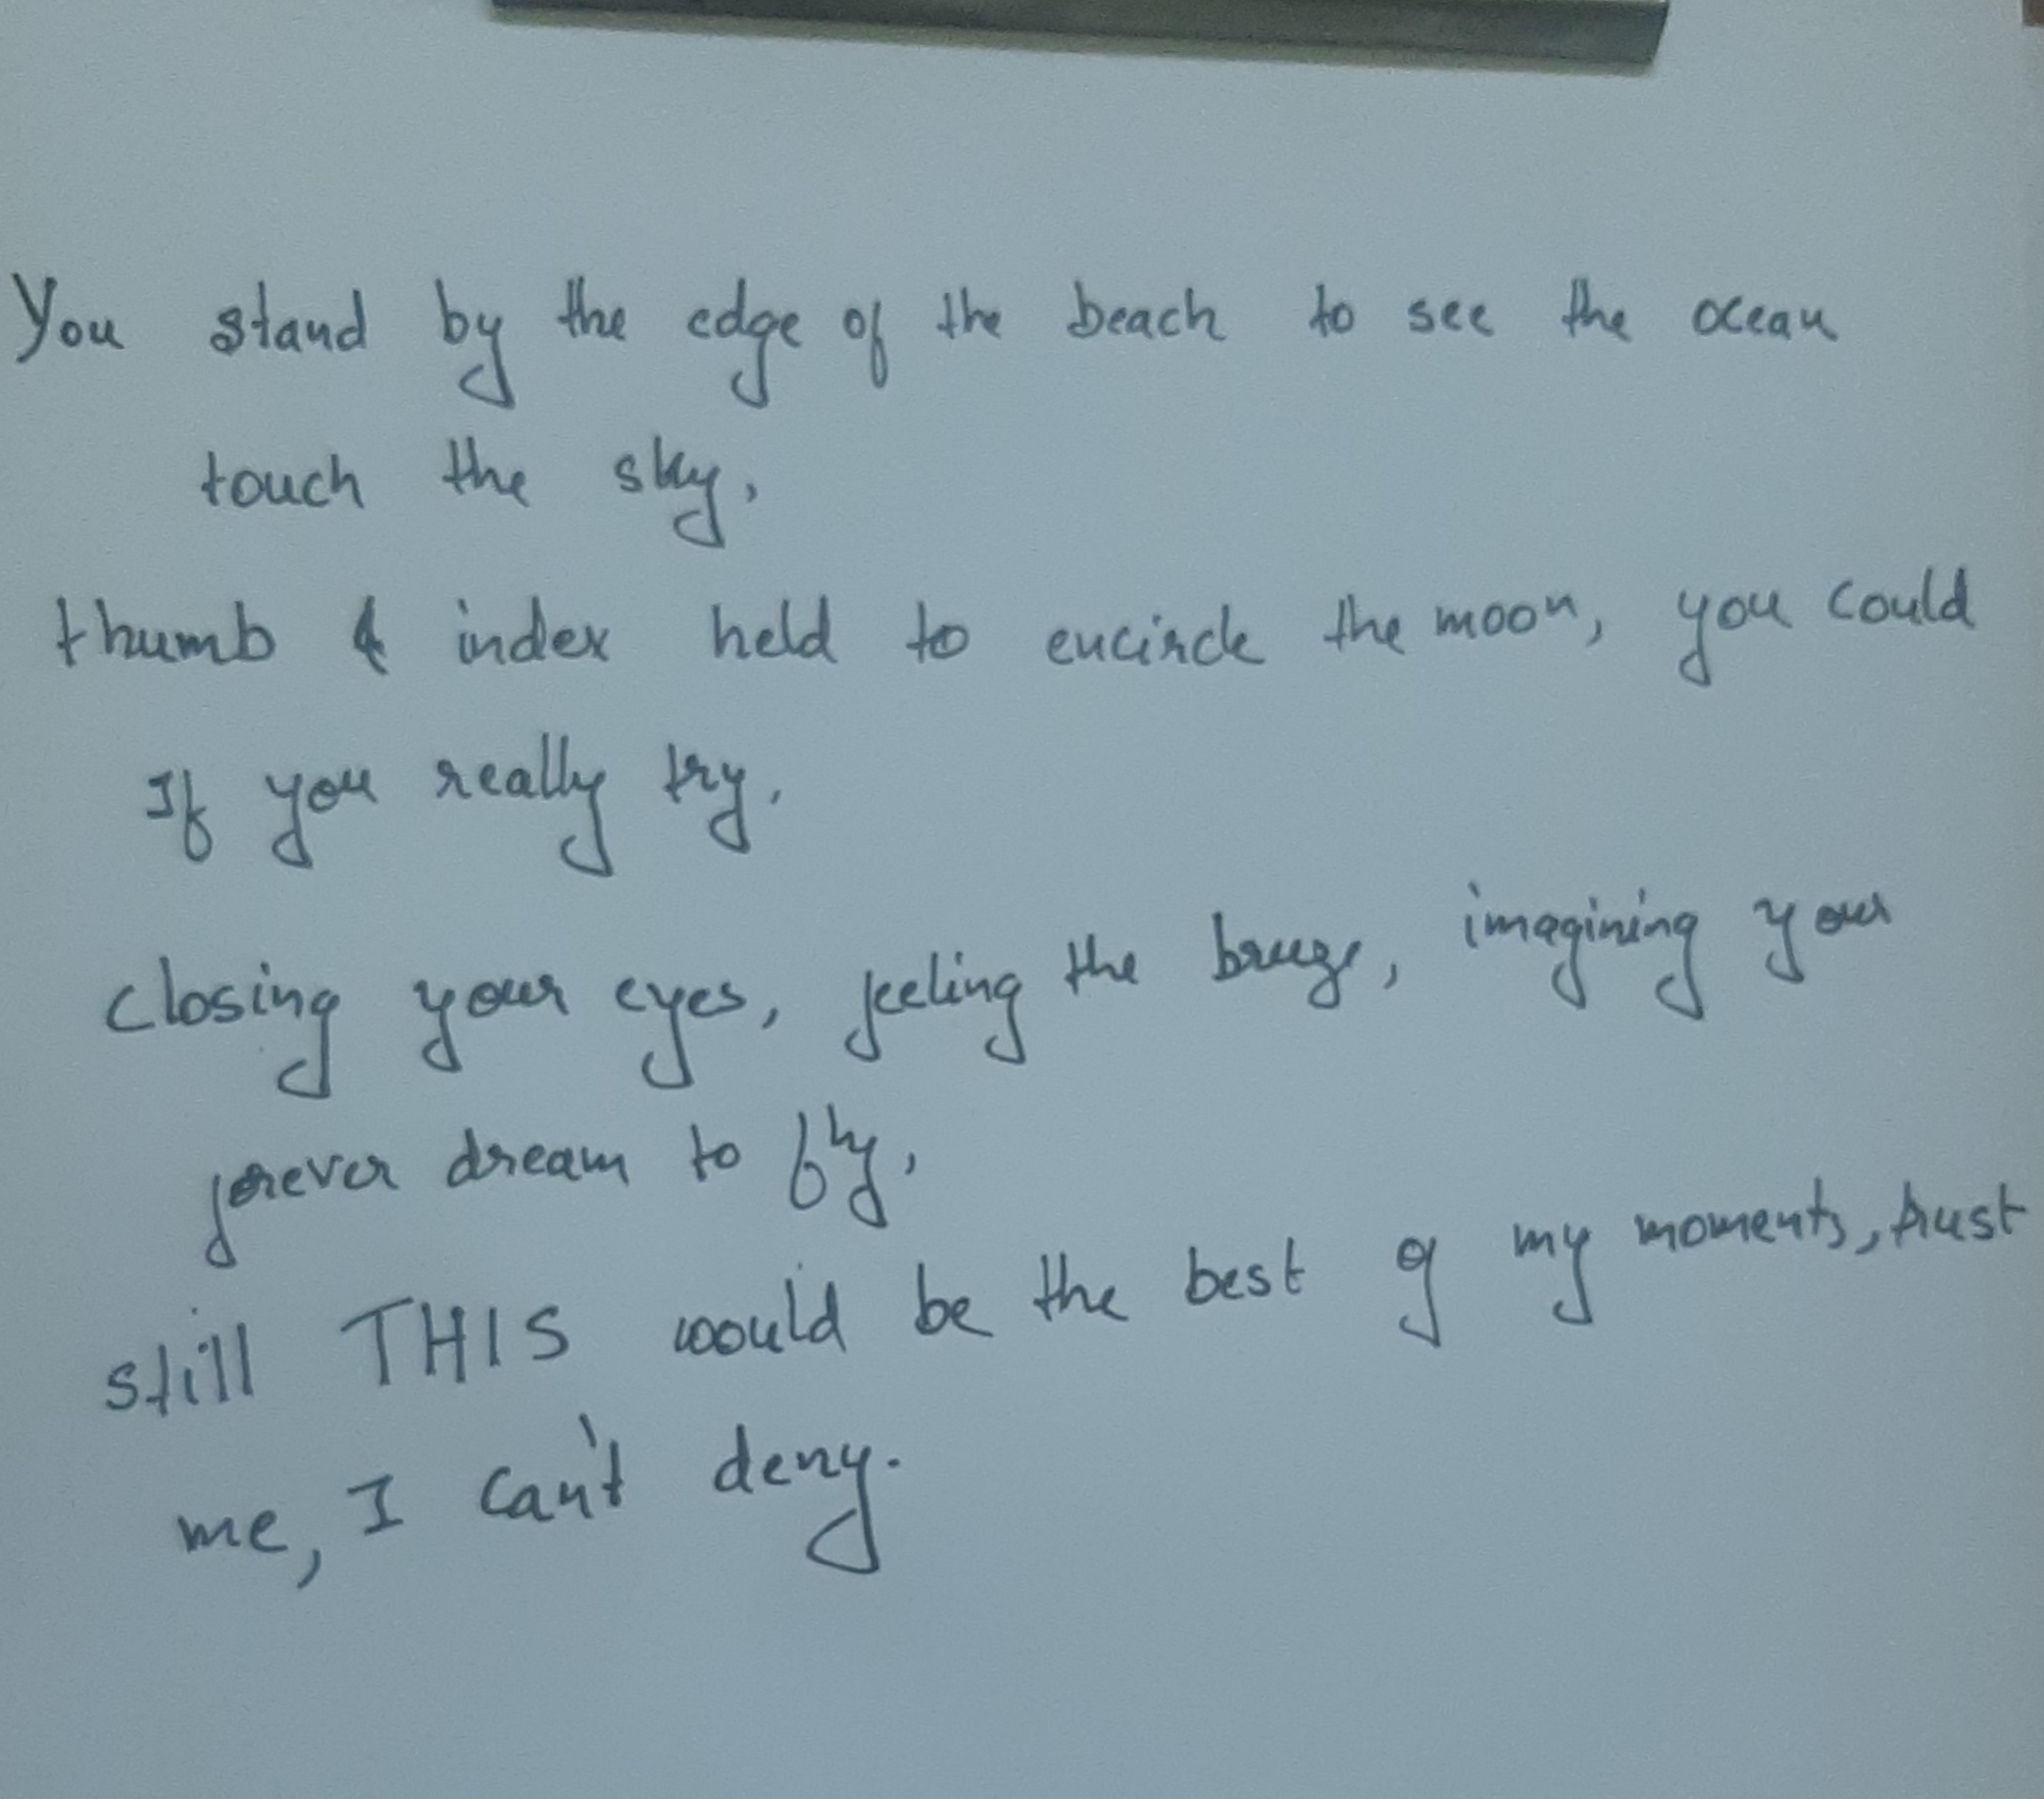 You stand by the edge of the beach to see the ocean
touch the sky,
thumb & index held to encircle the moon, you could
If you really try,
closing your eyes, feeling the breeze, imagining your
forever dream to fly,
still THIS would be the best of my moments, trust
me, I can't deny.